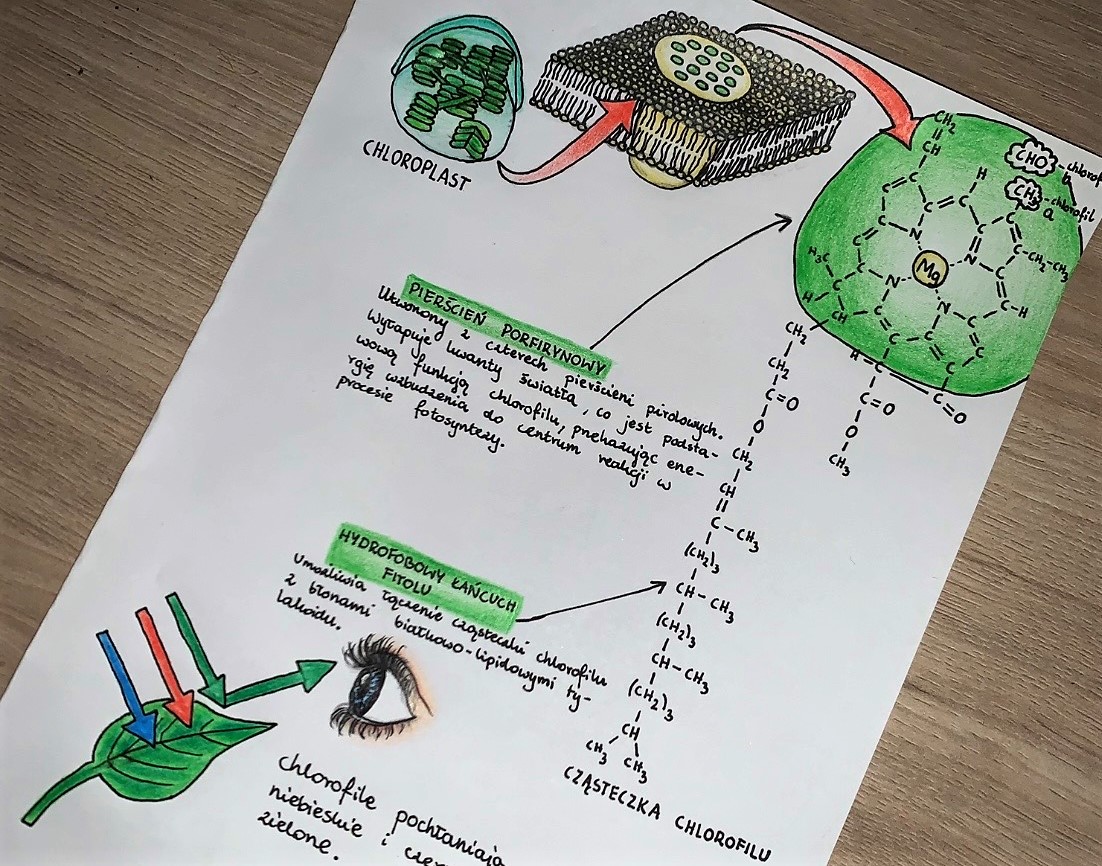 CHLOROPLAST
CH₂
CH
H
CHO - chlorof
b
CH₃ - chlorofil
a
C
C
C
C
C
C
N
N
Mg
N
N
C-CH₂-CH₃
H₃C
H
CH
C-H
CH₂
H
C
CH₂
C=O
C=O
C=O
O
O
CH₃
CH₂
CH
C-CH₃
(CH₂)₃
CH-CH₃
(CH₂)₃
CH-CH₃
(CH₂)₃
CH
CH₃
CH₃
CZĄSTECZKA CHLOROFILU
PIERŚCIEŃ PORFIRYNOWY
Utworzony z czterech pierścieni pirolowych.
Wyłapuje kwanty światła, co jest podsta-
wową funkcją chlorofilu, przekazując ene-
rgię wzbudzenia do centrum reakcji w
procesie fotosyntezy.
HYDROFOBOWY ŁAŃCUCH
FITOLU
Umożliwia łączenie cząsteczki chlorofilu
z błonami białkowo-lipidowymi ty-
lakoidu.
chlorofile pochłaniają
niebieskie i czer
zielone.